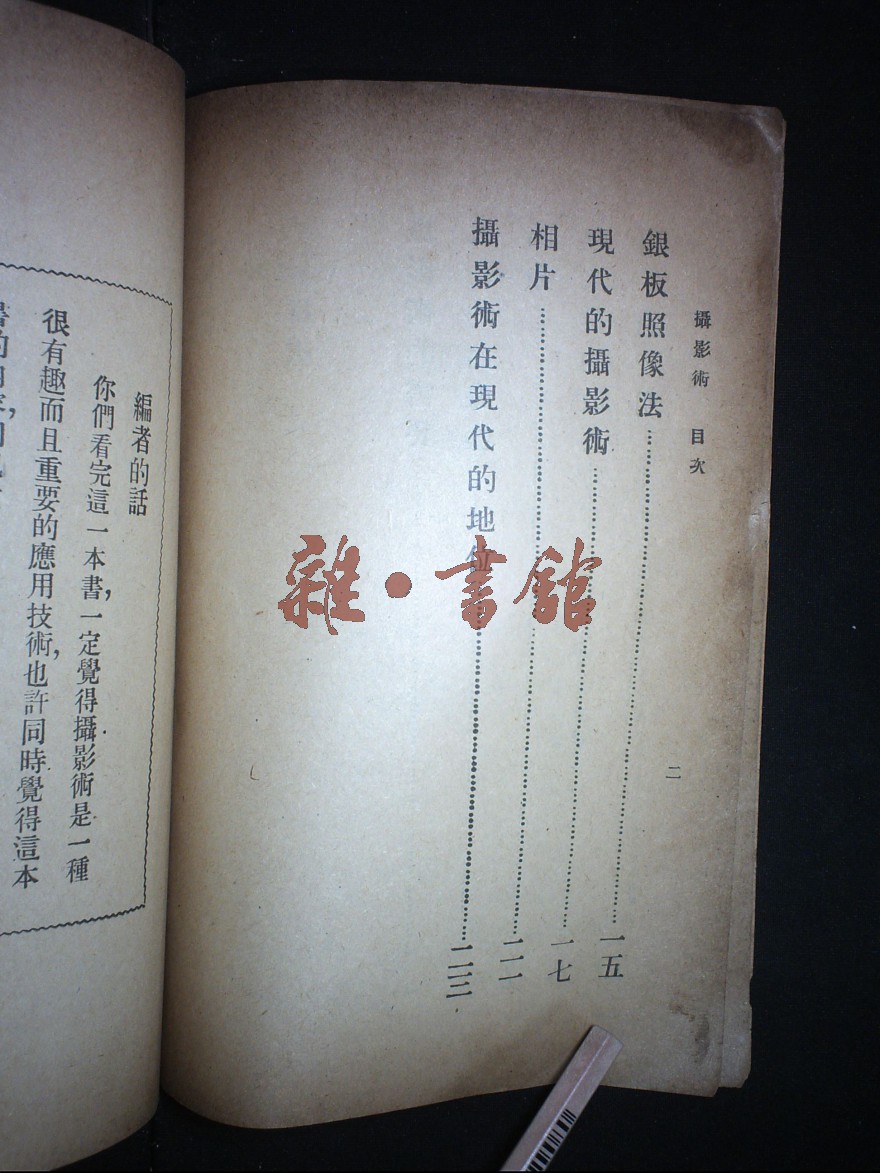 攝影術 目次
二
銀板照像法……一五
現代的攝影術……一七
相片……二一
攝影術在現代的地位……二三
雜·書館
編者的話
你們看完這一本書,一定覺得攝影術是一種
很有趣而且重要的應用技術,也許同時覺得這本